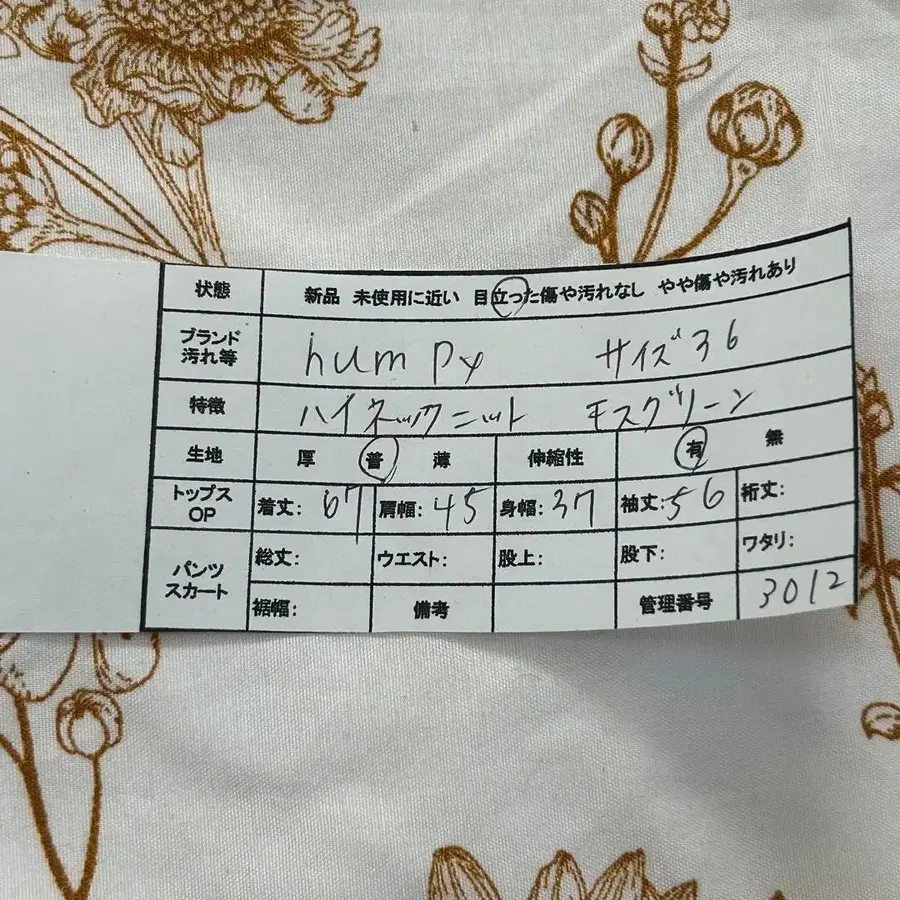 状態 新品 未使用に近い 目立った傷や汚れなし やや傷や汚れあり
ブランド 汚れ等 humpy サイズ36
特徴 ハイネックニット モスグリーン
生地 厚 普 薄 伸縮性 有 無
トップス OP 着丈: 67 肩幅: 45 身幅: 37 袖丈: 56 裄丈:
パンツ スカート 総丈: ウエスト: 股上: 股下: ワタリ:
裾幅: 備考 管理番号 3012